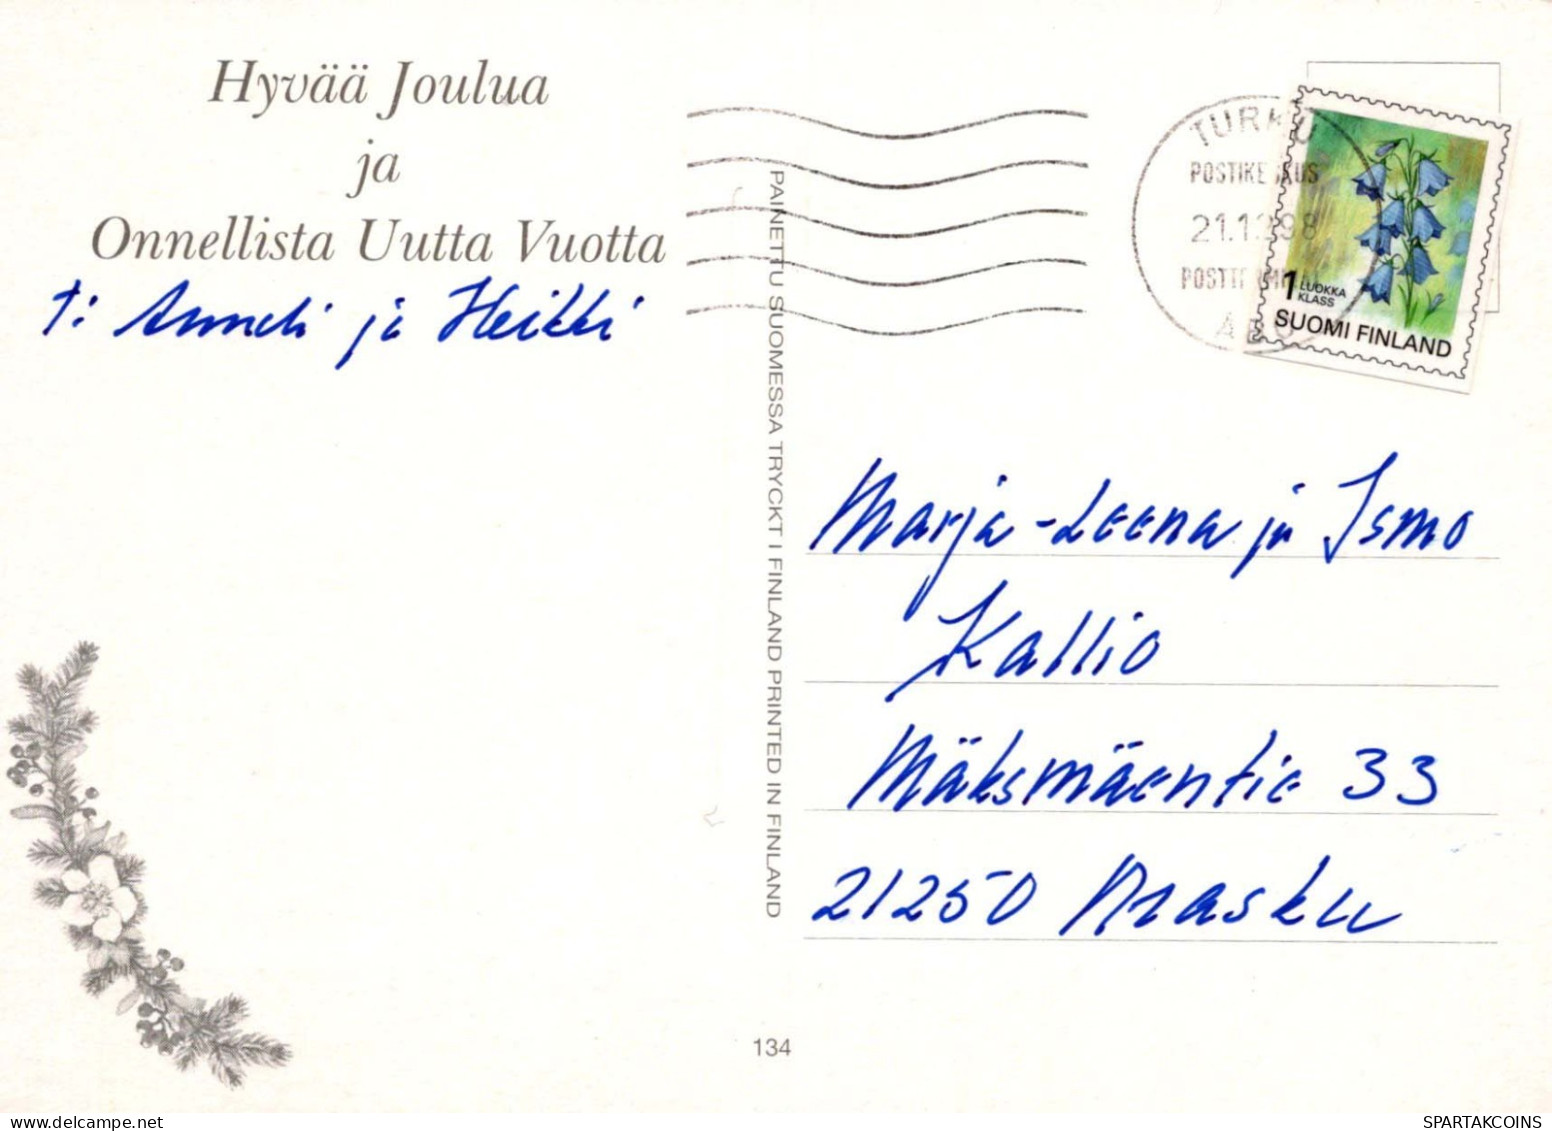 Hyvää Joulua
ja
Onnellista Uutta Vuotta
t: Anneli ja Heikki
PAINETTU SUOMESSA TRYCKT I FINLAND PRINTED IN FINLAND
TURKU
21.12.98
1 LUOKKA
KLASS
SUOMI FINLAND
Marja-Leena ja Ismo
Kallio
Mäksmäentie 33
21250 Masku
134
SPARTAKCOINS